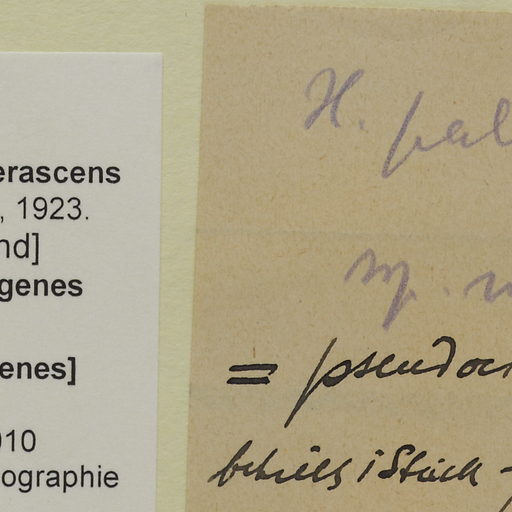 erascens
, 1923.
nd]
genes
enes]
010
ographie
H. pal
sp. n
= pseudoc
1 Stück